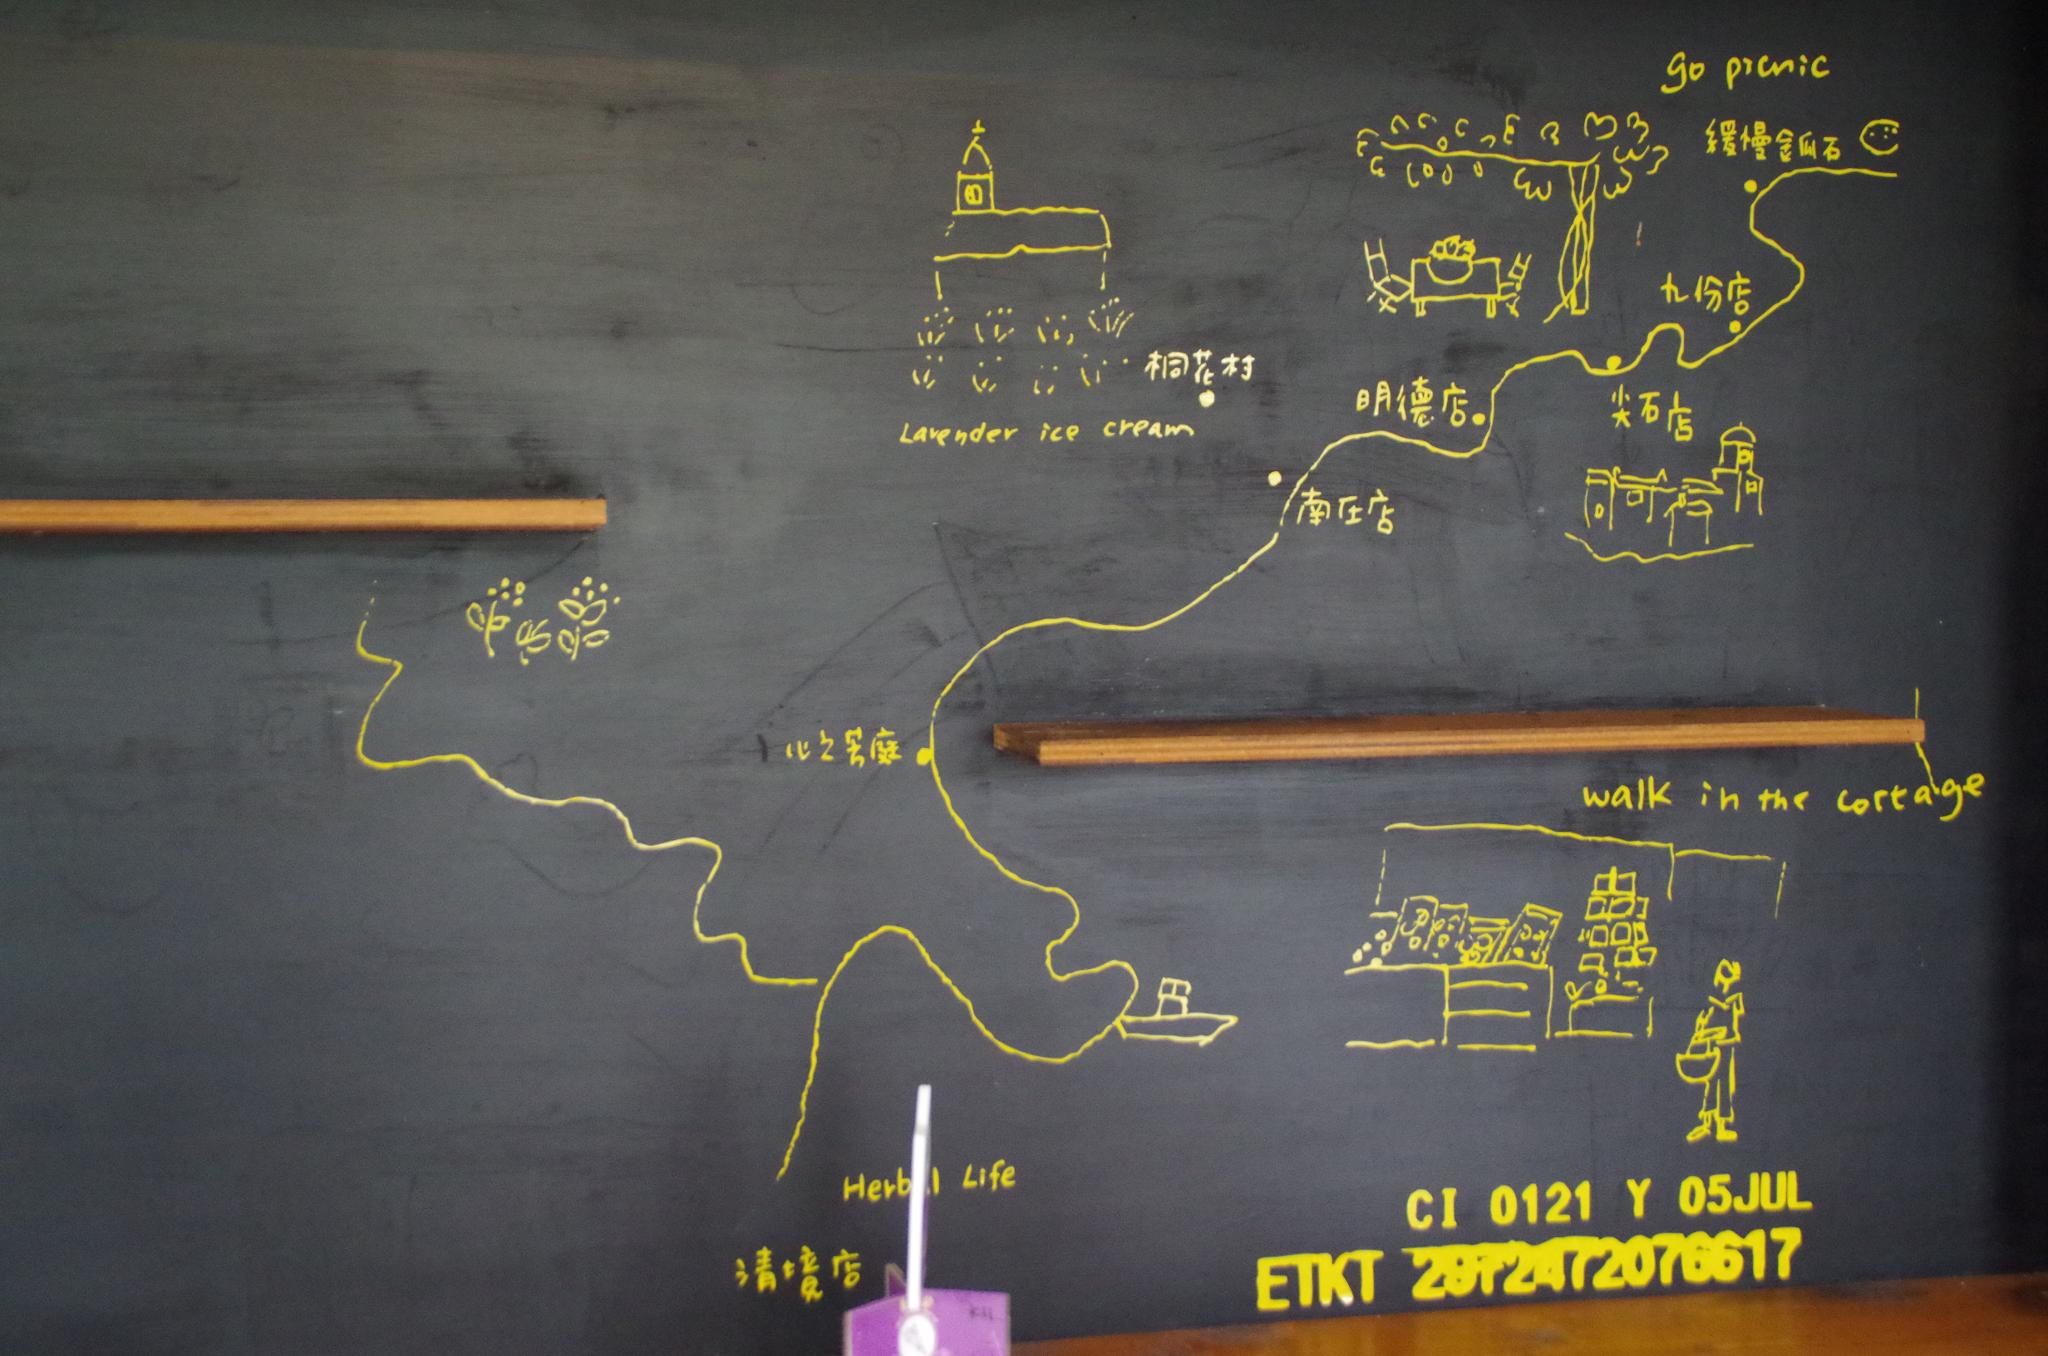 go picnic
緩慢金瓜石
九份店
桐花村
明德店
尖石店
Lavender ice cream
南庄店
心之芳庭
walk in the cottage
Herbal Life
CI 0121 Y 05JUL
清境店
ETKT 2972472076617